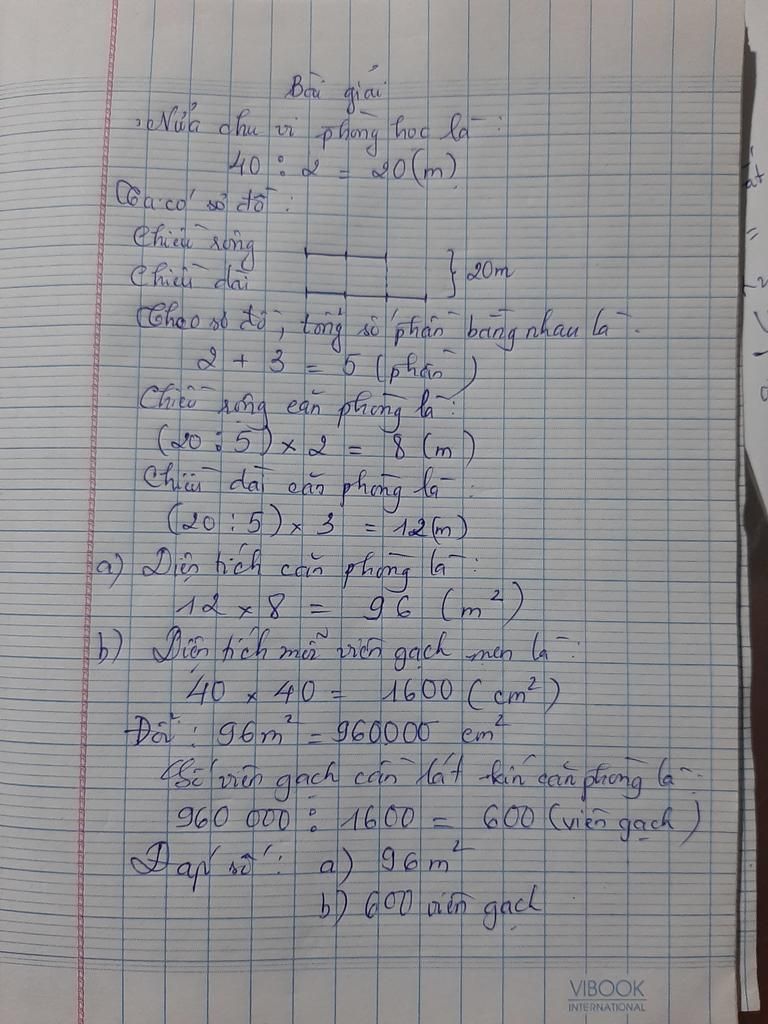 Bài giải
Nửa chu vi phòng học là:
40 : 2 = 20 (m)
Ta có sơ đồ:
Chiều rộng
Chiều dài } 20m
Theo sơ đồ, tổng số phần bằng nhau là:
2 + 3 = 5 (phần)
Chiều rộng căn phòng là:
(20 : 5) × 2 = 8 (m)
Chiều dài căn phòng là:
(20 : 5) × 3 = 12 (m)
a) Diện tích căn phòng là:
12 × 8 = 96 (m²)
b) Diện tích mỗi viên gạch men là:
40 × 40 = 1600 (cm²)
Đổi: 96m² = 960000 cm²
Số viên gạch cần lát kín căn phòng là:
960 000 : 1600 = 600 (viên gạch)
Đáp số: a) 96m²
b) 600 viên gạch
VIBOOK
INTERNATIONAL